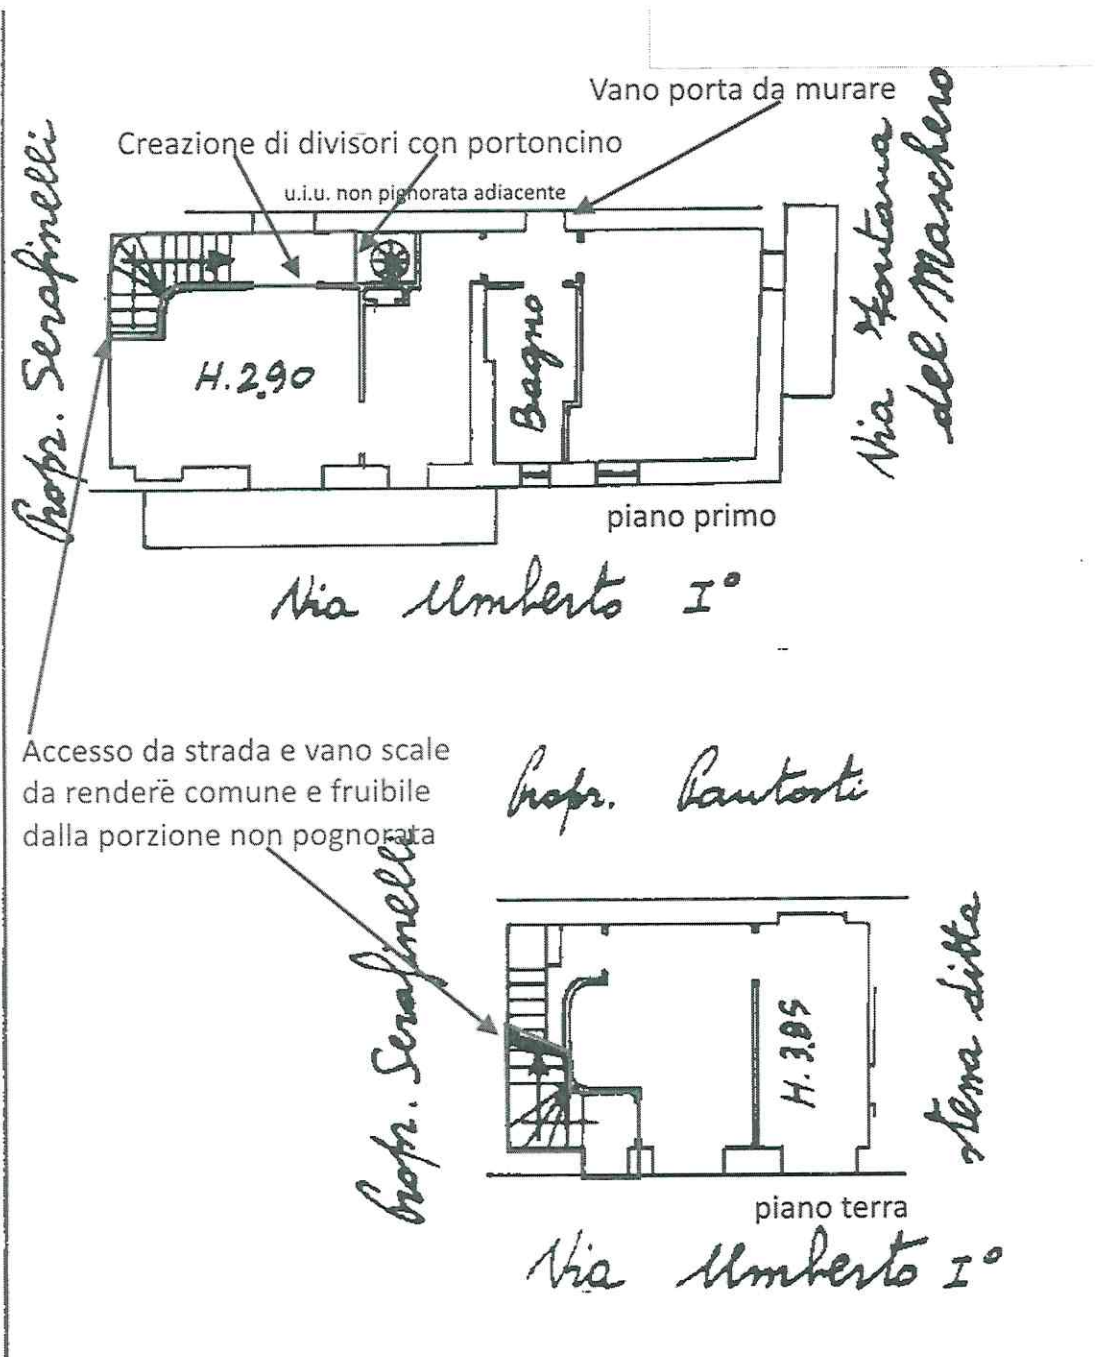 Vano porta da murare
Creazione di divisori con portoncino
u.i.u. non pignorata adiacente
Propr. Serafinelli
Via Fontana
del Maschero
H. 2.90
Bagno
piano primo
Via Umberto I°
Accesso da strada e vano scale
da rendere comune e fruibile
dalla porzione non pognorata
Propr. Pautosti
Propr. Serafinelli
H. 3.85
stessa ditta
piano terra
Via Umberto I°